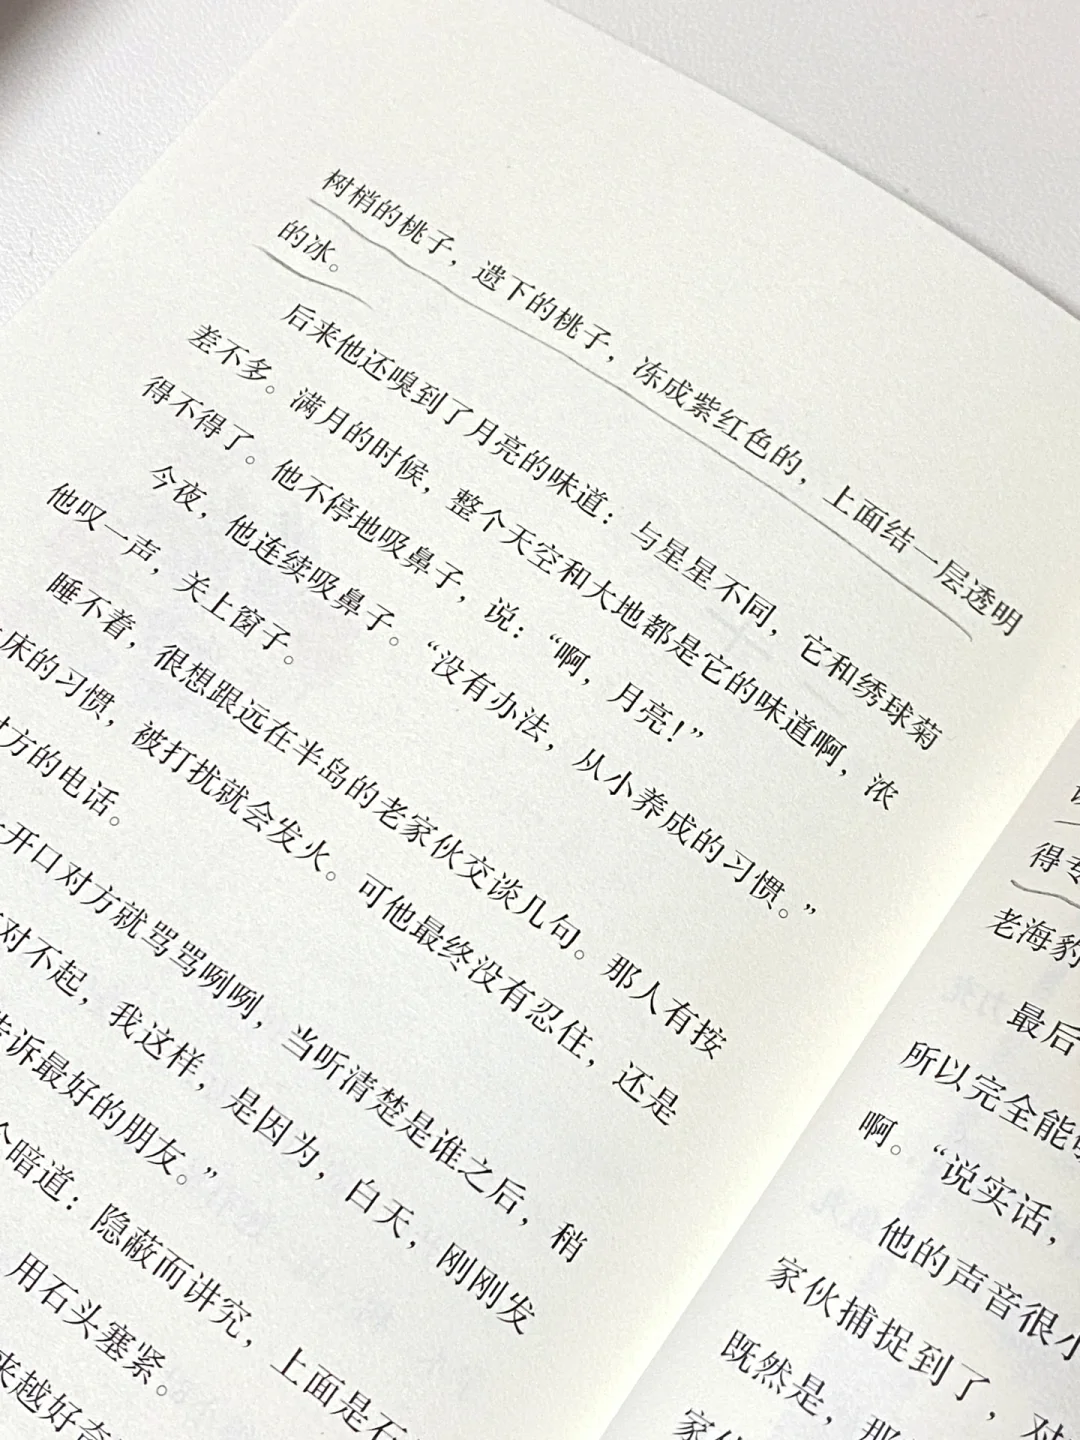 树梢的桃子，遗下的桃子，冻成紫红色的，上面结一层透明
的冰。
后来他还嗅到了月亮的味道：与星星不同，它和绣球菊
差不多。满月的时候，整个天空和大地都是它的味道啊，浓
得不得了。他不停地吸鼻子，说：“啊，月亮！”
今夜，他连续吸鼻子。“没有办法，从小养成的习惯。”
他叹一声，关上窗子。
睡不着，很想跟远在半岛的老家伙交谈几句。那人有按
床的习惯，被打扰就会发火。可他最终没有忍住，还是
对方的电话。
开口对方就骂骂咧咧，当听清楚是谁之后，稍
对不起，我这样，是因为，白天，刚刚发
告诉最好的朋友。”
个暗道：隐蔽而讲究，上面是石
用石头塞紧。
来越好奇
得专
老海豹
最后
所以完全能
啊。“说实话，
他的声音很小
家伙捕捉到了，对
既然是，那
家伙